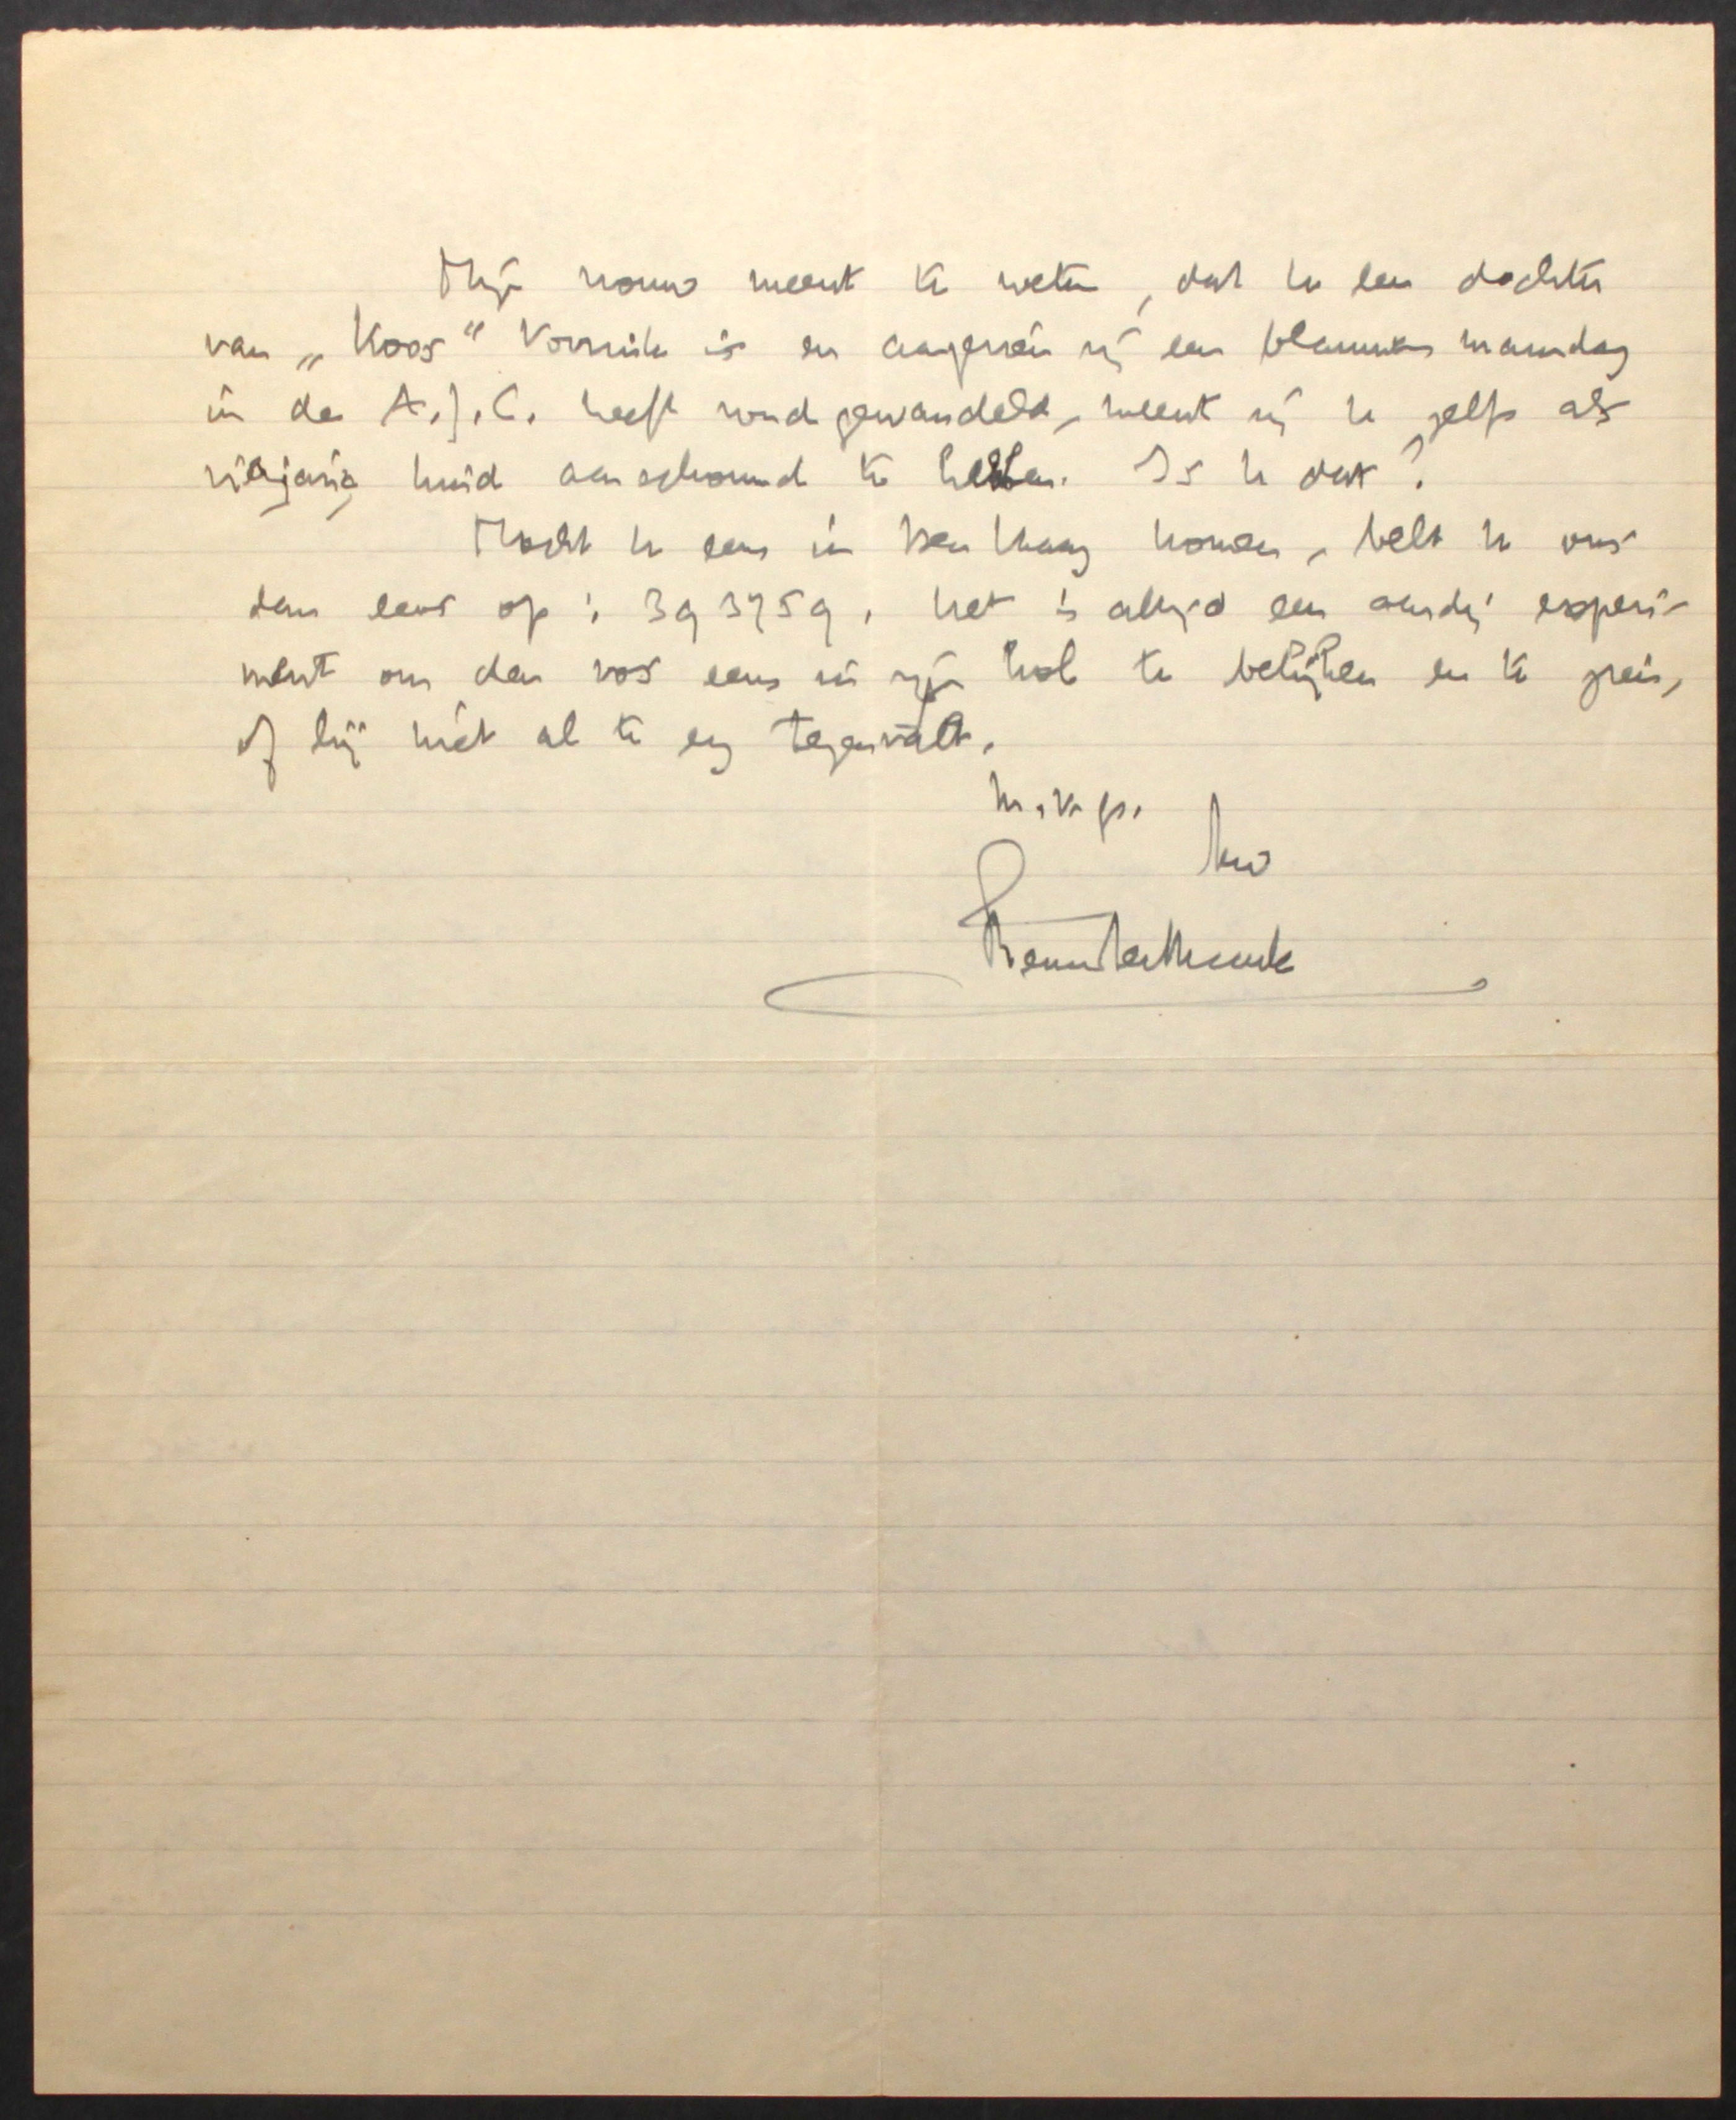 Mijn vrouw meent te weten, dat u een dochter
van „Koos" Vorrink is en aangezien zij een blauwen maandag
in de A.J.C. heeft rond gewandeld, meent zij u zelfs als
vierjarig kind aanschouwd te hebben. Is u dat?
Mocht u eens in Den Haag komen, belt u ons
dan eens op: 393759, het is altijd een aardig experi-
ment om den vos eens in zijn hol te bekijken en te zien,
of hij niet al te erg tegenvalt.
m. vr. gr.
Uw